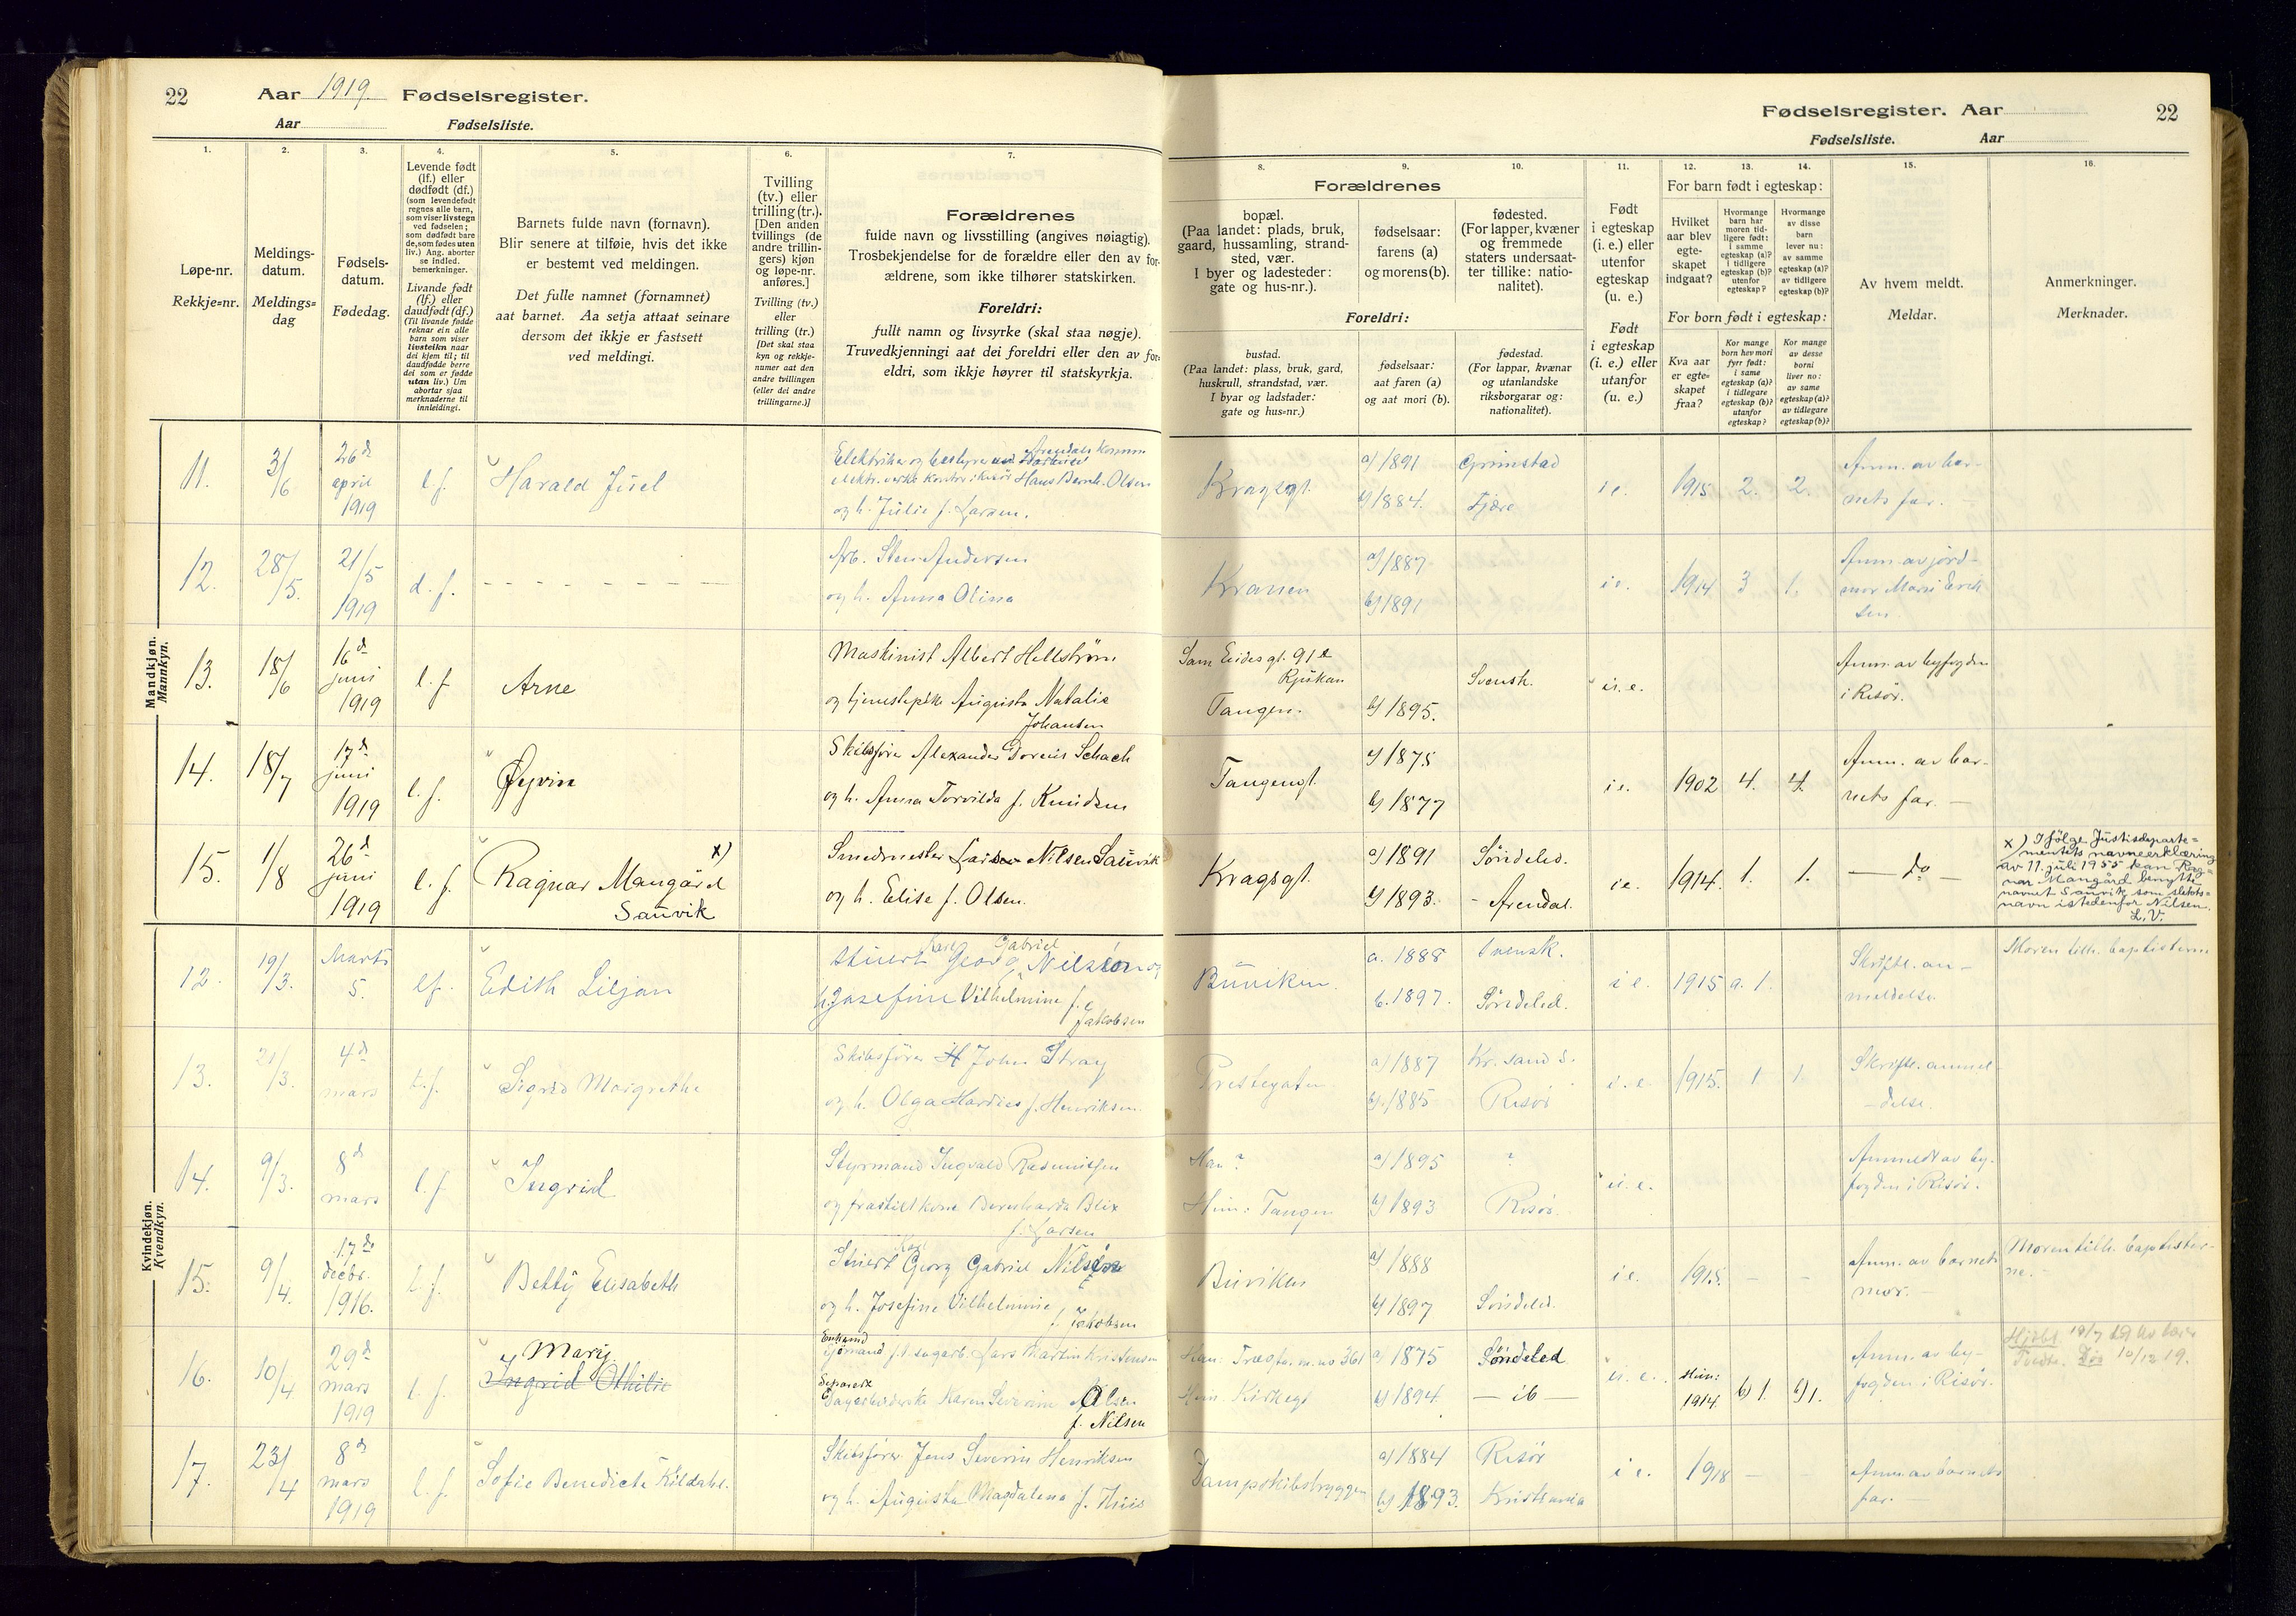 22 Aar 1919. Fødselsregister.
Aar Fødselsliste.
Fødselsregister. Aar 22
Fødselsliste. Aar
1. 2. 3. 4. 5. 6. 7.
Løpe-nr.
Rekkje=nr.
Meldings-
datum.
Meldings=
dag
Fødsels-
datum.
Fødedag.
Levende født
(lf.) eller
dødfødt (df.)
(som levendefødt
regnes alle barn,
som viser livstegn
ved fødselen;
som dødfødt bare
de, som fødes uten
liv.) Ang. aborter
se indled.
bemerkninger.
Livande født
(lf.) eller
daudfødt (df.)
(Til livande fødde
reknar ein alle
barn som viser
livsteikn naar
dei kjem til; til
daudfødde berre
dei som er fødde
utan liv.) Um
abortar sjaa
merknaderne til
innleidingi.
Barnets fulde navn (fornavn).
Blir senere at tilføie, hvis det ikke
er bestemt ved meldingen.
Det fulle namnet (fornamnet)
aat barnet. Aa setja attaat seinare
dersom det ikkje er fastsett
ved meldingi.
Tvilling
(tv.) eller
trilling (tr.).
[Den anden
tvillings (de
andre trillin-
gers) kjøn
og løpe-nr.
anføres.]
Tvilling (tv.)
eller
trilling (tr.)
[Det skal staa
kyn og rekkje-
numer aat den
andre tvillingen
(eller dei andre
trillingarne.)]
Forældrenes
fulde navn og livsstilling (angives nøiagtig).
Trosbekjendelse for de forældre eller den av for-
ældrene, som ikke tilhører statskirken.
Foreldri:
fullt namn og livsyrke (skal staa nøgje).
Truvedkjenningi aat dei foreldri eller den av for-
eldri, som ikkje høyrer til statskyrkja.
8. 9. 10. 11. 12. 13. 14. 15. 16.
Forældrenes
bopæl.
(Paa landet: plads, bruk,
gaard, hussamling, strand-
sted, vær.
I byer og ladesteder:
gate og hus-nr.).
fødselsaar:
farens (a)
og morens (b).
fødested.
(For lapper, kvæner
og fremmede
staters undersaat-
ter tillike: natio-
nalitet).
Foreldri:
bustad.
(Paa landet: plass, bruk, gard,
huskrull, strandstad, vær.
I byar og ladstader:
gate og hus=nr.)
fødselsaar:
aat faren (a)
og aat mori (b).
fødestad.
(For lappar, kvænar
og utanlandske
riksborgarar og:
nationalitet).
Født
i egteskap
(i. e.) eller
utenfor
egteskap
(u. e.)
Født
i egteskap
(i. e.) eller
utanfor
(u. e.)
For barn født i egteskap:
Hvilket
aar blev
egte-
skapet
indgaat?
Hvormange
barn har
moren tid-
ligere født:
i samme
egteskap (a)?
i tidligere
egteskap (b)?
utenfor
egteskap?
Hvormange
av disse
barn
lever nu:
av samme
egteskap (a)?
av tidligere
egteskap (b)?
For born født i egteskap:
Kva aar
er egte=
skapet
fraa?
Kor mange
born hev mori
fyrr født:
i same
egteskap (a)?
i tidlegare
egteskap (b)?
utanfor
egteskap?
Kor mange
av desse
borni
liver no:
av same
egteskap (a)?
av tidlegare
egteskap (b)?
Av hvem meldt.
Meldar.
Anmerkninger.
Merknader.
Mandkjøn.
Mannkyn.
11. 3/6 26d april 1919 l. f. Harald Juel
og h. Julie f. Larsen.
Kragsgt. a) 1891 Grimstad
b) 1884. Fjære
i e. 1915 2. 2. Anm. av bar-
nets far.
12. 28/5. 21/5 1919 d. f. - - - - - - -
Arb. Sten Andersen
og h. Anna Olina
Kranen a) 1887
b) 1891
i e. 1914 3 1. Anm. av jord-
mor Marie Erik
sen
13. 18/6 16d juni 1919 l. f. Arne
Maskinist Albert Hellström
og tjenestepike Augusta Natalie
Johansen
Sam Eidesgt. 91
Rjukan
Tangen. b) 1895.
Svensk.
u. e. Anm. av byfogden
i Risør.
14. 18/7 17d juni 1919 l. f. Øyvin
Skibsfører Alexander Dorenis Schach
og h. Anna Torvilda f. Knudsen
Tangengt. a) 1875
b) 1877
i e. 1902 4. 4. Anm. av bar-
nets far. —
15. 1/8 26d juni 1919 l. f. Ragnar Mangård x)
Sauvik
Smedmester Nilsen Sauvik
og h. Elise f. Olsen.
Kragsgt. a) 1891 Söndeled.
b) 1893. - Arendal.
i e. 1914. 1. 1. — do —
x) Ifølge Justisdeparte=
mentets navneerklæring
av 11. juli 1955 kan Rag=
nar Mangård benytte
navnet Sauvik som slekts=
navn istedenfor Nilsen.
L.V.
Kvindekjøn.
Kvendkyn.
12. 19/3. Marts 5. lf. Edith Liljan
Karl Gabriel
Stuert Georg Nilsén og
h. Josefine Vilhelmine f.
Jakobsen
Buviken. a. 1888 Svensk.
b. 1897. Söndeled.
i e. 1915 a. 1. Skriftl. an-
meldelse.
Moren tilh. baptisterne
13. 21/3. 4d mars l. f. Sigrid Margrethe
Skibsfører John Stray
og h. Olga Hardies f. Henriksen.
Prestegaten a) 1887 Kr. sand S.
b) 1885 Risör
i. e. 1915. 1 1 Skriftl. anmel-
delse.
14. 9/3. 8d mars l. f. Ingrid
Styrmand Ingvald Rasmussen
og fraskilt kone Bernharda Blix
f. Larsen
Han ? a) 1895 ?
Hun: Tangen b) 1893 Risør.
u. e. Anmeldt av by-
fogden i Risør.
15. 9/4. 17de decbr. 1916. l. f. Betty Elisabeth
Karl
Stuert Georg Gabriel Nilsén
og h. Josefine Vilhelmine
f. Jakobsen
Buviken a) 1888
b) 1897 Söndeled.
i e. 1915. — — Anm. av barnets
mor.
Moren tilh. baptister-
ne.
16. 10/4 29d mars 1919 l. f. Mary
Ingrid Othilie
Enkemand
Lars Martin Kristensen
Separert
Karen Severine Olsen
f. Nilsen
Han: 361 a) 1875 Söndeled
Hun. Kirkegt b) 1894 — ib —
u. e. Hun:
1914 b) 1. b) 1. Anm. av by-
fogden i Risör.
10/12 19.
17. 23/4 8d mars 1919 l. f. Sofie Benedicte Kildahl.
Skibsfører Jens Severin Henriksen
og h. Augusta Magdalena f. Thiis
Dampskibsbryggen a) 1884 Risör
b) 1893. Kristiania
i e. 1918 — — Anm. av barnets
far. —